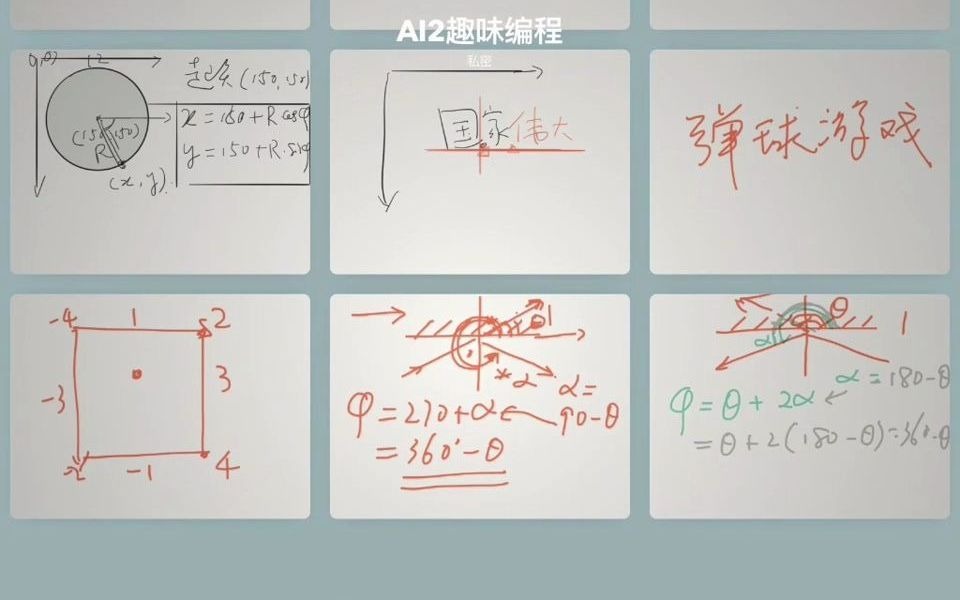 AI2趣味编程
私密
(0,0)
起点(150,150)
(150,150)
R
x=150+R cosφ
y=150+R.sinφ
(x,y)
国家伟大
弹球游戏
-4 1 2
-3 3
-2 -1 4
θ 1
α
α=
φ=270+α 90-θ
=360°-θ
θ 1
α
α=180-θ
φ=θ+2α
=θ+2(180-θ)=360-θ